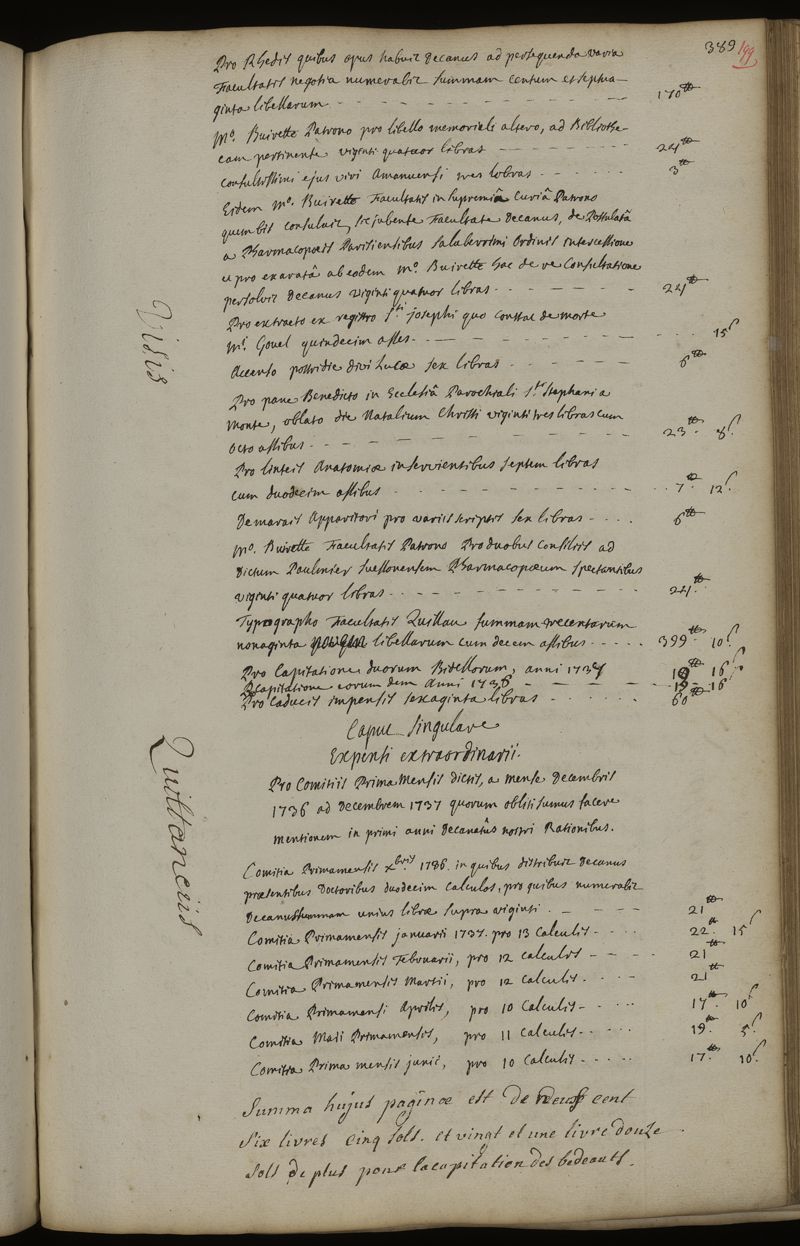 389 199
Pro Rhedis quibus opus habuit Decanus ad persequenda varia
Facultatis negotia numerabit summam centum et septua-
ginta libellarum - - - 170 tt
Mo. Buirette Patrono pro libello memoriali altero, ad Bibliothe-
cam pertinente viginti quatuor libras - - - 24 tt
consultissimi ejus viri Amanuensi tres libras - - - 3 tt
Eidem Mo. Buirette Facultatis in supremâ Curiâ Patrono
quem bis consuluit, sic jubente Facultate Decanus, de Postulatâ
a Pharmacopoeis Parisiensibus saluberrimi ordinis intercessione
et pro exaratâ ab eodem Mo. Buirette hac de re Consultatione
persolvit Decanus viginti quatuor libras - - - 24 tt
Pro extracto ex registro Sti josephi quo constat de morte
Mi. Gouel quindecim asses - - - 15 s
Accenso postridie divi Lucæ sex libras - - - 6 tt
Pro pane Benedicto in Ecclesiâ Parochiali Sti. Stephani a
Monte, oblato die Natalium Christi viginti tres libras cum
octo assibus - - - 23 tt 8 s
Pro linteis Anatomiæ inservientibus septem libras
cum duodecim assibus - - - 7 tt 12 s
Demarais Apparitori pro variis scriptis sex libras - - - 6 tt
Mo. Buirette Facultatis Patrono Pro duobus Consiliis ad
dictum Paulmier suessonensem Pharmacopœum spectantibus
viginti quatuor libras - - - 24 tt
Typographo Facultatis Quillau summam trecentarum
nonaginta novem libellarum cum decem assibus - - - 399 tt 10 s
Pro Capitatione duorum Bidellorum, anni 1737 16 s
Pro Capitatione eorumdem Anni 1738 - - - 16
Pro caducis impensis sexaginta libras - - - 60 tt
Visis
Quittanciis
Caput singulare
Expensi extraordinarii.
Pro Comitiis Prima Mensis dictis, a mense Decembris
1736 ad Decembrem 1737 quorum obliti sumus facere
mentionem in primi anni Decanatûs nostri Rationibus.
Comitia Primamensis Xbris 1736. in quibus distribuit Decanus
præsentibus Doctoribus duodecim calculos, pro quibus numerabit
Decanus summam unius libræ supra viginti - - - 21 tt
Comitia Primamensis januarii 1737. pro 13 Calculis - - - 22 tt 15 s
Comitia Primamensis Februarii, pro 12 calculis - - - 21 tt
Comitia Primamensis Martii, pro 12 calculis - - - 21 tt
Comitia Primamensi Aprilis, pro 10 Calculis - - - 17 tt 10 s
Comitia Maii Primamensis, pro 11 calculis - - - 19 tt 5 s
Comitia Prima mensis junii, pro 10 Calculis - - - 17 tt 10 s
Summa hujus paginæ est De neuf cent
six livres cinq sols. et vingt et une livre douze
sols de plus pour la capitation des bedeauts.